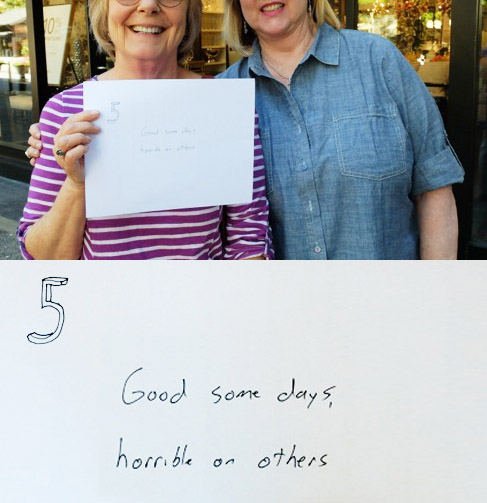 5
Good some days,
horrible on others
5
Good some days,
horrible on others